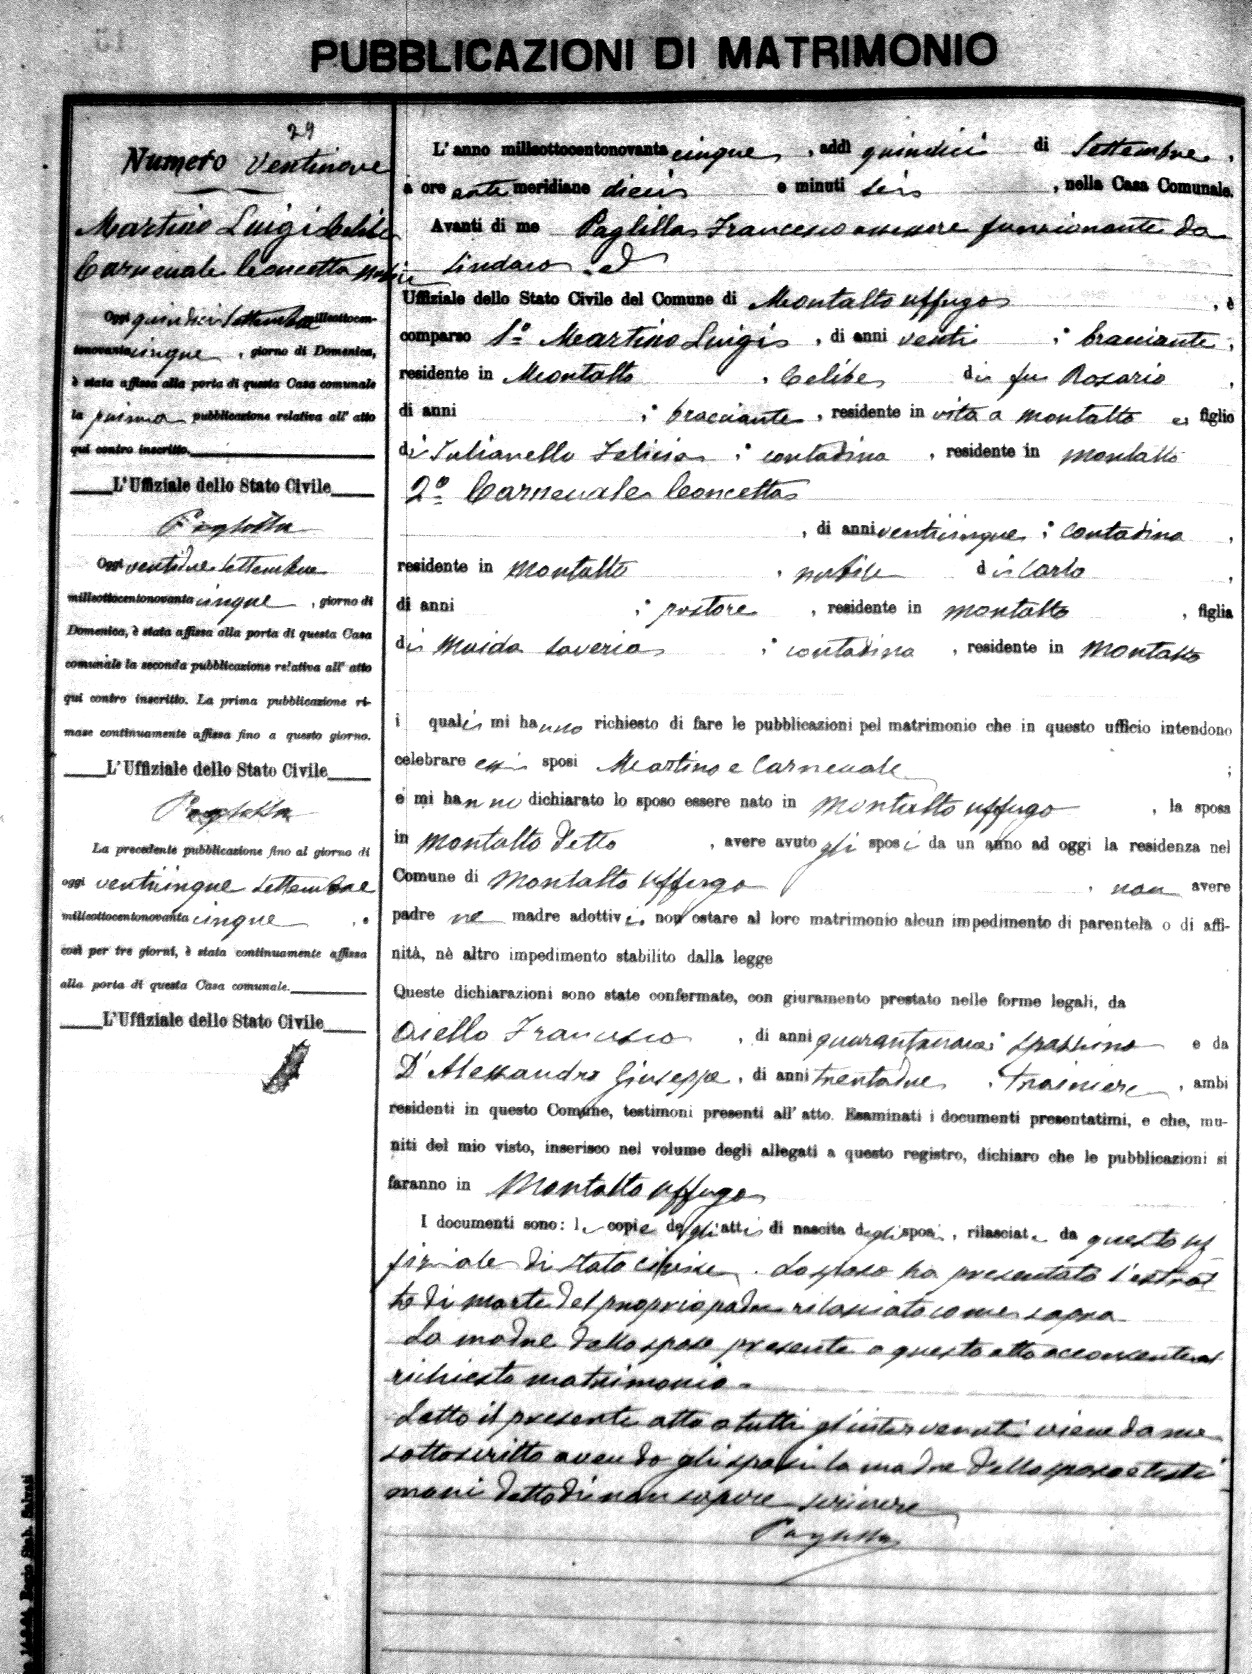 PUBBLICAZIONI DI MATRIMONIO
29
Numero Ventinove
Martino Luigi Celibe
Carnevale Concetta nubile
Oggi quindici Settembre milleottocen-
tonovantacinque, giorno di Domenica,
è stata affissa alla porta di questa Casa comunale
la prima pubblicazione relativa all' atto
qui contro inscritto.
L'Uffiziale dello Stato Civile
Oggi ventidue settembre
milleottocentonovantacinque, giorno di
Domenica, è stata affissa alla porta di questa Casa
comunale la seconda pubblicazione relativa all' atto
qui contro inscritto. La prima pubblicazione ri-
mase continuamente affissa fino a questo giorno.
L'Uffiziale dello Stato Civile
La precedente pubblicazione fino al giorno di
oggi venticinque settembre
milleottocentonovantacinque, e
così per tre giorni, è stata continuamente affissa
alla porta di questa Casa comunale.
L'Uffiziale dello Stato Civile
L'anno milleottocentonovantacinque, addì quindici di Settembre,
a ore ante meridiane dieci e minuti seis, nella Casa Comunale.
Avanti di me Francesco assessore funzionante da
sindaco ed
Uffiziale dello Stato Civile del Comune di Montalto Uffugo, è
comparso 1° Martino Luigi, di anni venti; bracciante,
residente in Montalto, Celibe di fu Rosario,
di anni ; bracciante, residente in vita a Montalto e figlio
di Julianello Felicia; contadina, residente in Montalto
2° Carnevale Concetta
, di anni venticinque; contadina,
residente in Montalto, nubile di Carlo,
di anni ; pastore, residente in Montalto, figlia
di Maida Saveria; contadina, residente in Montalto
i quali mi hanno richiesto di fare le pubblicazioni pel matrimonio che in questo ufficio intendono
celebrare essi sposi Martino e Carnevale;
e mi hanno dichiarato lo sposo essere nato in Montalto Uffugo, la sposa
in Montalto detto, avere avuto gli sposi da un anno ad oggi la residenza nel
Comune di Montalto Uffugo, non avere
padre ne madre adottivi non ostare al loro matrimonio alcun impedimento di parentela o di affi-
nità, nè altro impedimento stabilito dalla legge
Queste dichiarazioni sono state confermate, con giuramento prestato nelle forme legali, da
Aiello Francesco, di anni quarantanove; e da
D'Alessandro Giuseppe, di anni trentadue, trainiere, ambi
residenti in questo Comune, testimoni presenti all' atto. Esaminati i documenti presentatimi, e che, mu-
niti del mio visto, inserisco nel volume degli allegati a questo registro, dichiaro che le pubblicazioni si
faranno in Montalto Uffugo
I documenti sono: le copie degli atti di nascita degli sposi, rilasciate da questo uf
fiziale di stato civile. Lo sposo ha presentato l'estrat
to di morte del proprio padre rilasciato come sopra
La madre dello sposo presente a questo atto acconsente al
richiesto matrimonio.
Letto il presente atto a tutti gl'intervenuti viene da me
sottoscritto avendo gli sposi la madre dello sposo e testi
moni detto di non sapere scrivere